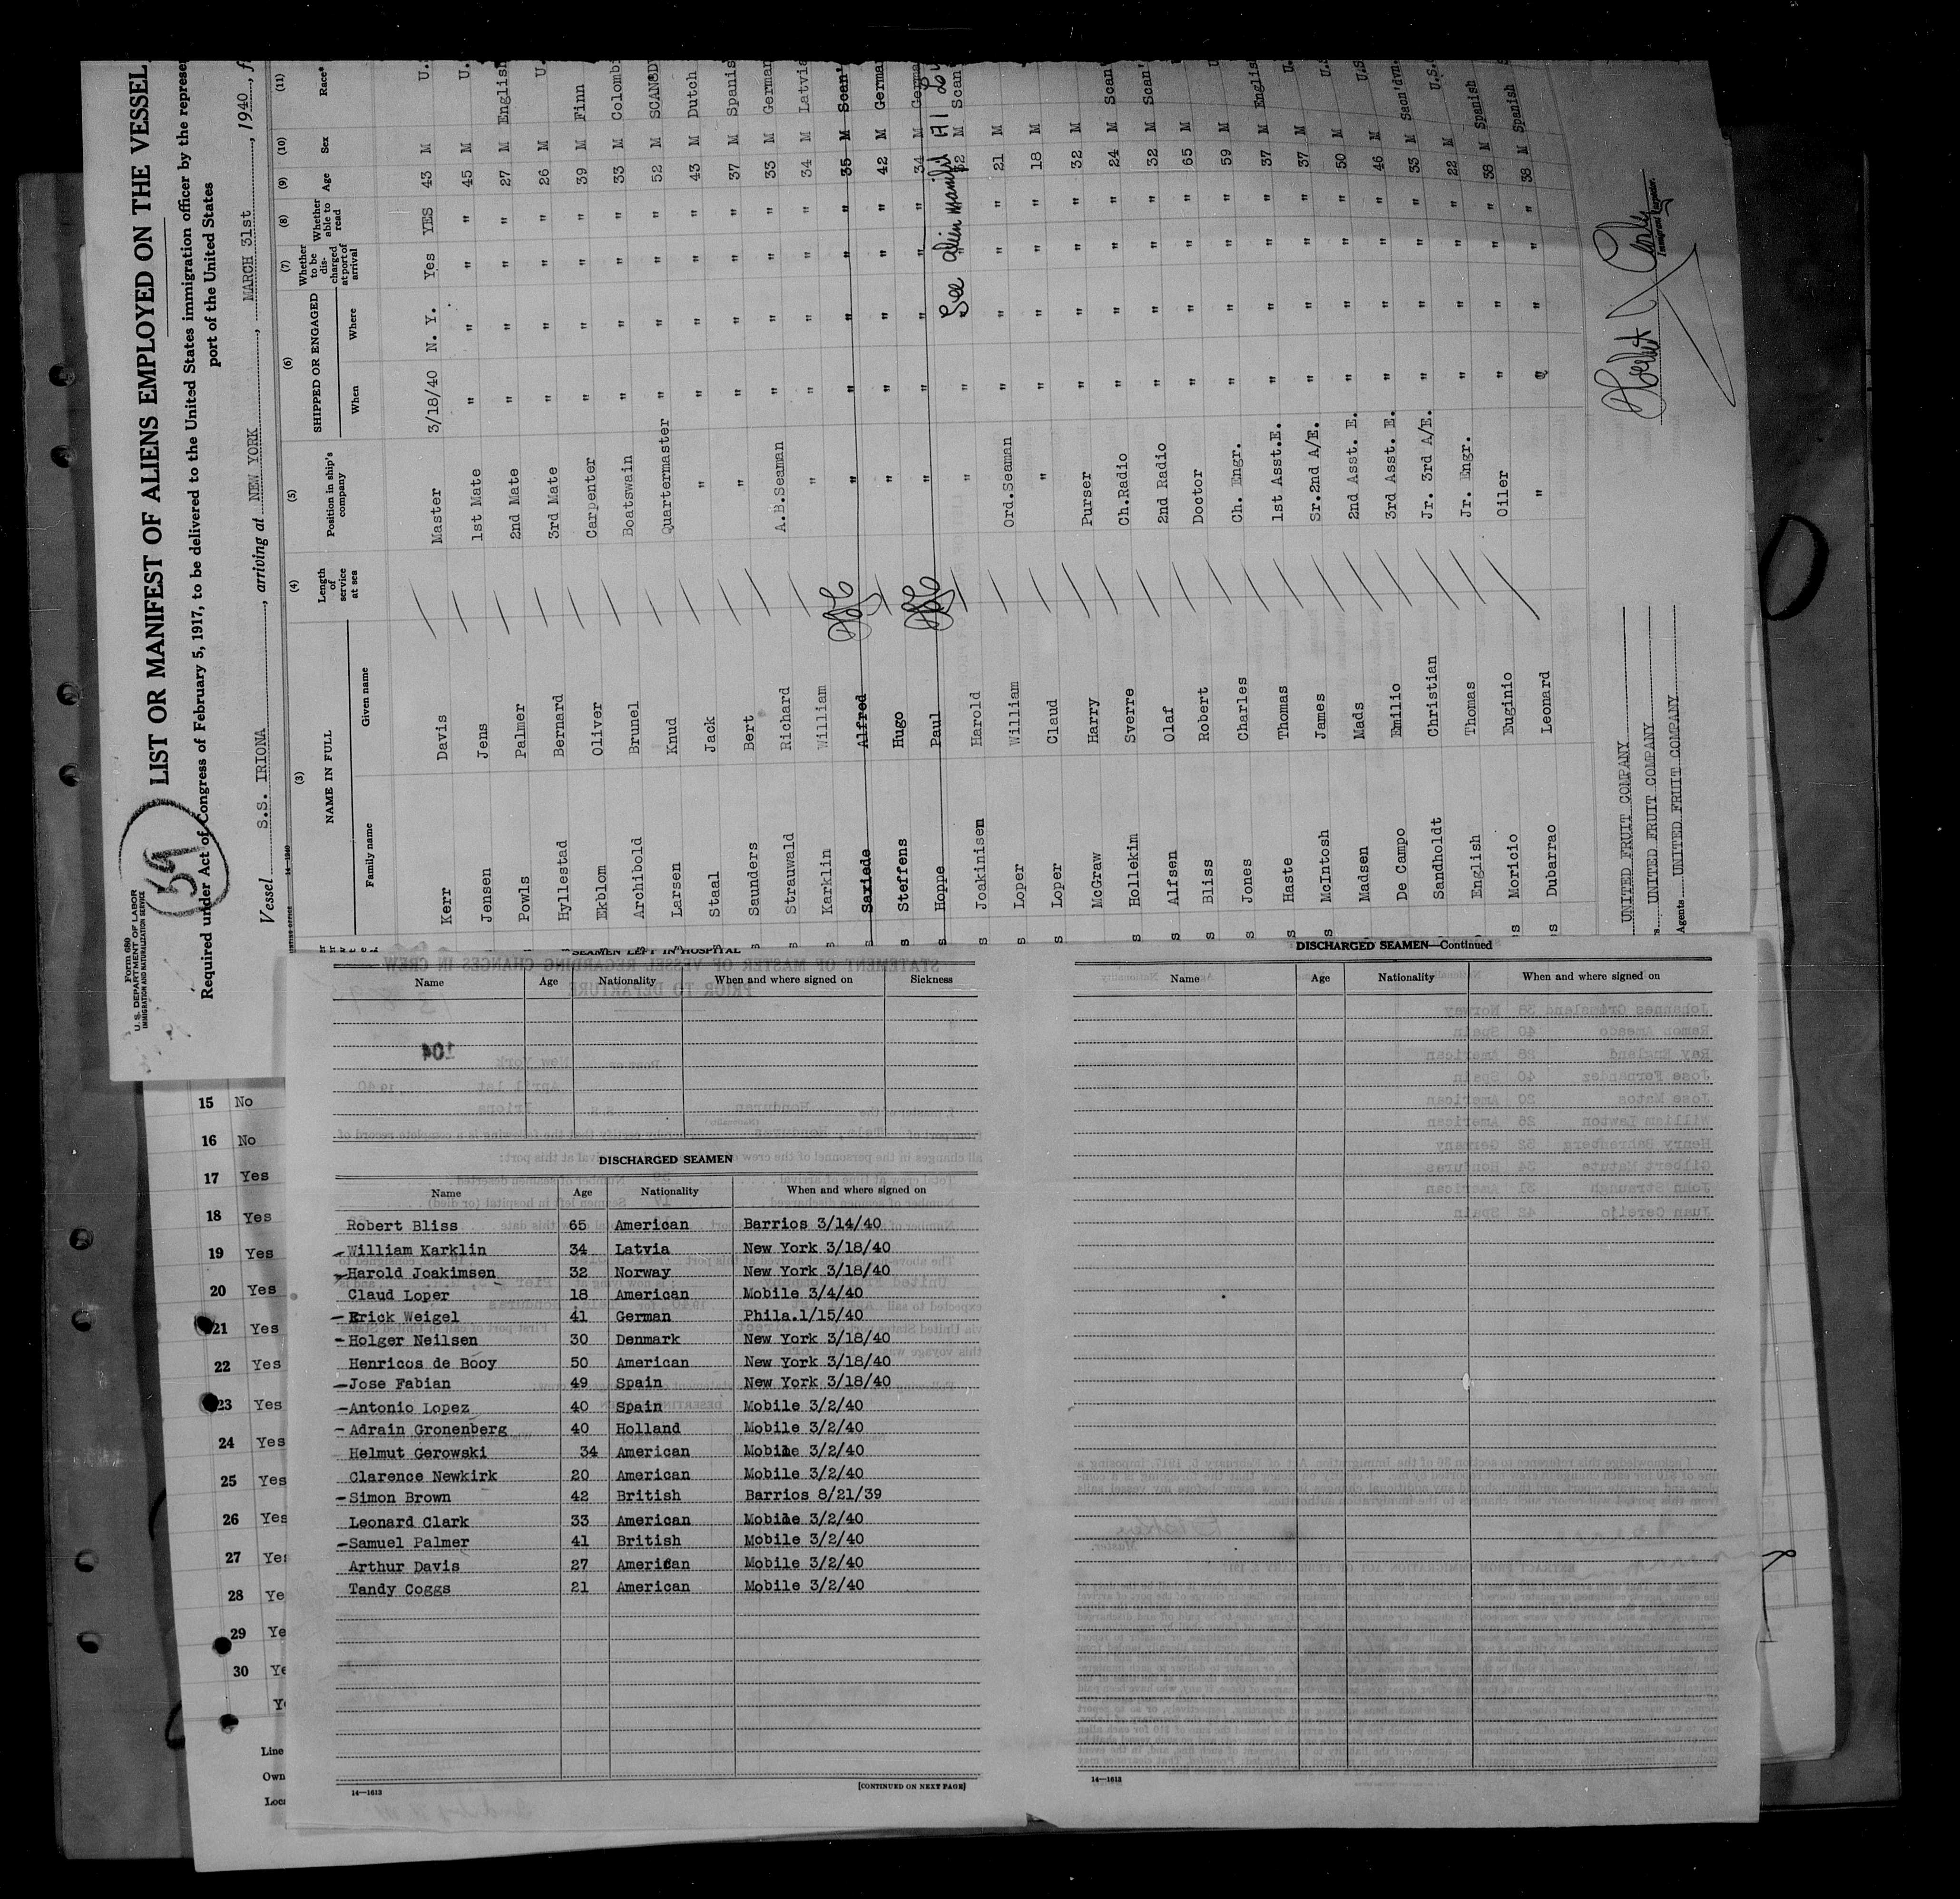 Form 680
U. S. DEPARTMENT OF LABOR
IMMIGRATION AND NATURALIZATION SERVICE
59
LIST OR MANIFEST OF ALIENS EMPLOYED ON THE VESSEL
Required under Act of Congress of February 5, 1917, to be delivered to the United States immigration officer by the represen
port of the United States
Vessel S.S. IRIONA, arriving at NEW YORK, MARCH 31st, 1940, f
(3) (4) (5) (6) (7) (8) (9) (10) (11)
NAME IN FULL Length of service at sea Position in ship's company SHIPPED OR ENGAGED Whether to be discharged at port of arrival Whether able to read Age Sex Race*
Family name Given name When Where
Kerr Davis Master 3/18/40 N. Y. Yes YES 43 M U.
Jensen Jens 1st Mate " " " " 45 M U.
Powls Palmer 2nd Mate " " " " 27 M English
Hyllestad Bernard 3rd Mate " " " " 26 M U.
Ekblom Oliver Carpenter " " " " 39 M Finn
Archibold Brunel Boatswain " " " " 33 M Colombi
Larsen Knud Quartermaster " " " " 52 M SCAND
Staal Jack " " " " " 43 M Dutch
Saunders Bert " " " " " 37 M Spanis
Strauwald Richard A.B.Seaman " " " " 33 M German
Karklin William " " " " " 34 M Latvia
Saxiede Alfred " " " " " 35 M Scan'
Steffens Hugo " " " " " 42 M Germa
Hoppe Paul " " " " " 34 M Germa
See alien manifest
Joakinisen Harold " " " " " 32 M Scan
Loper William Ord.Seaman " " " " 21 M
Loper Claud " " " " " 18 M
McGraw Harry Purser " " " " 32 M
Hollekim Sverre Ch.Radio " " " " 24 M Scan'
Alfsen Olaf 2nd Radio " " " " 32 M Scan'
Bliss Robert Doctor " " " " 65 M U
Jones Charles Ch. Engr. " " " " 59 M U
Haste Thomas 1st Asst.E. " " " " 37 M Englis
McIntosh James Sr.2nd A/E. " " " " 37 M U.
Madsen Mads 2nd Asst. E. " " " " 50 M U.S
De Campo Emilio 3rd Asst. E. " " " " 46 M U.S
Sandholdt Christian Jr. 3rd A/E. " " " " 33 M Sacn'dvn.
English Thomas Jr. Engr. " " " " 22 M U.S.
Moricio Euginio Oiler " " " " 38 M Spanish
Dubarrao Leonard " " " " " 38 M Spanish
UNITED FRUIT COMPANY
UNITED FRUIT COMPANY
Agents UNITED FRUIT COMPANY
Immigrant Inspector.
15 No
16 No
17 Yes
18 Yes
19 Yes
20 Yes
21 Yes
22 Yes
23 Yes
24 Yes
25 Yes
26 Yes
27 Yes
28 Ye
29 Ye
30 Ye
Ye
Line
Own
Loca
SEAMEN LEFT IN HOSPITAL
Name Age Nationality When and where signed on Sickness
104
DISCHARGED SEAMEN
Name Age Nationality When and where signed on
Robert Bliss 65 American Barrios 3/14/40
-William Karklin 34 Latvia New York 3/18/40
-Harold Joakimsen 32 Norway New York 3/18/40
Claud Loper 18 American Mobile 3/4/40
-Erick Weigel 41 German Phila.1/15/40
-Holger Neilsen 30 Denmark New York 3/18/40
Henricos de Booy 50 American New York 3/18/40
-Jose Fabian 49 Spain New York 3/18/40
-Antonio Lopez 40 Spain Mobile 3/2/40
-Adrain Gronenberg 40 Holland Mobile 3/2/40
Helmut Gerowski 34 American Mobile 3/2/40
Clarence Newkirk 20 American Mobile 3/2/40
-Simon Brown 42 British Barrios 8/21/39
Leonard Clark 33 American Mobile 3/2/40
-Samuel Palmer 41 British Mobile 3/2/40
Arthur Davis 27 American Mobile 3/2/40
Tandy Coggs 21 American Mobile 3/2/40
14—1613 [CONTINUED ON NEXT PAGE]
DISCHARGED SEAMEN—Continued
Name Age Nationality When and where signed on
14—1613